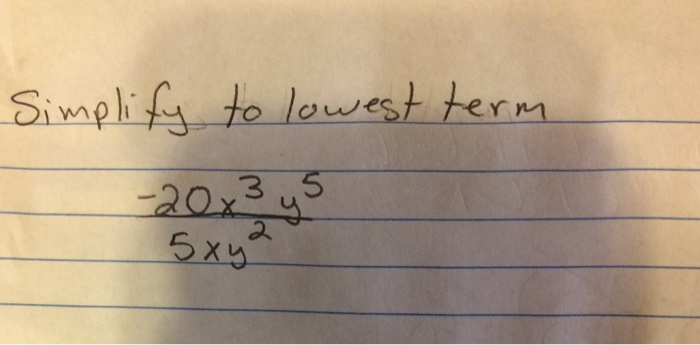 Simplify to lowest term
-20x³y⁵
5xy²